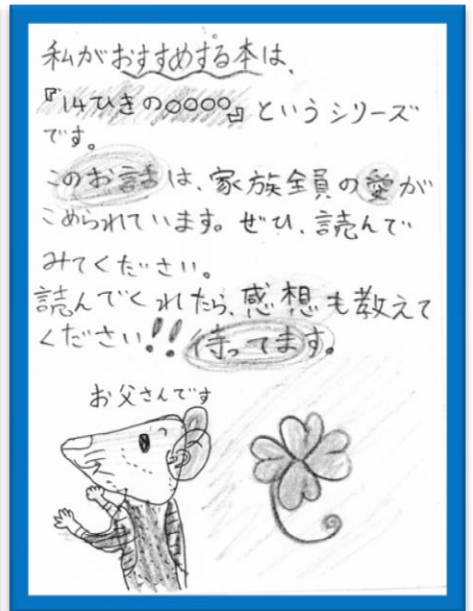 私がおすすめする本は、
『14ひきの○○○○』というシリーズ
です。
このお話は、家族全員の愛が
こめられています。ぜひ、読んで
みてください。
読んでくれたら、感想も教えて
ください!!待ってます。
お父さんです